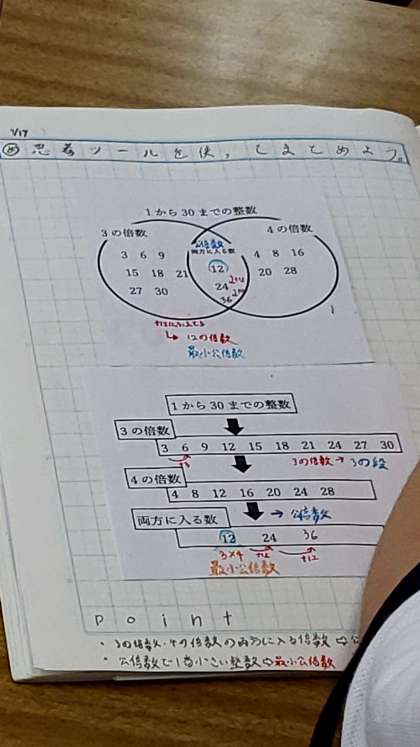 1/17
め 思考ツールを使ってまとめよう。
1から30までの整数
3の倍数
4の倍数
公倍数
両方に入る数
3 6 9
15 18 21
27 30
12
24
36
4 8 16
20 28
12の倍数
最小公倍数
1から30までの整数
3の倍数
3 6 9 12 15 18 21 24 27 30
3の倍数→3の段
4の倍数
4 8 12 16 20 24 28
両方に入る数
→公倍数
12 24 36
3×4 +12 +12
最小公倍数
Point
・3の倍数・4の倍数の両方に入る倍数⇨
・公倍数で1番小さい整数⇨最小公倍数